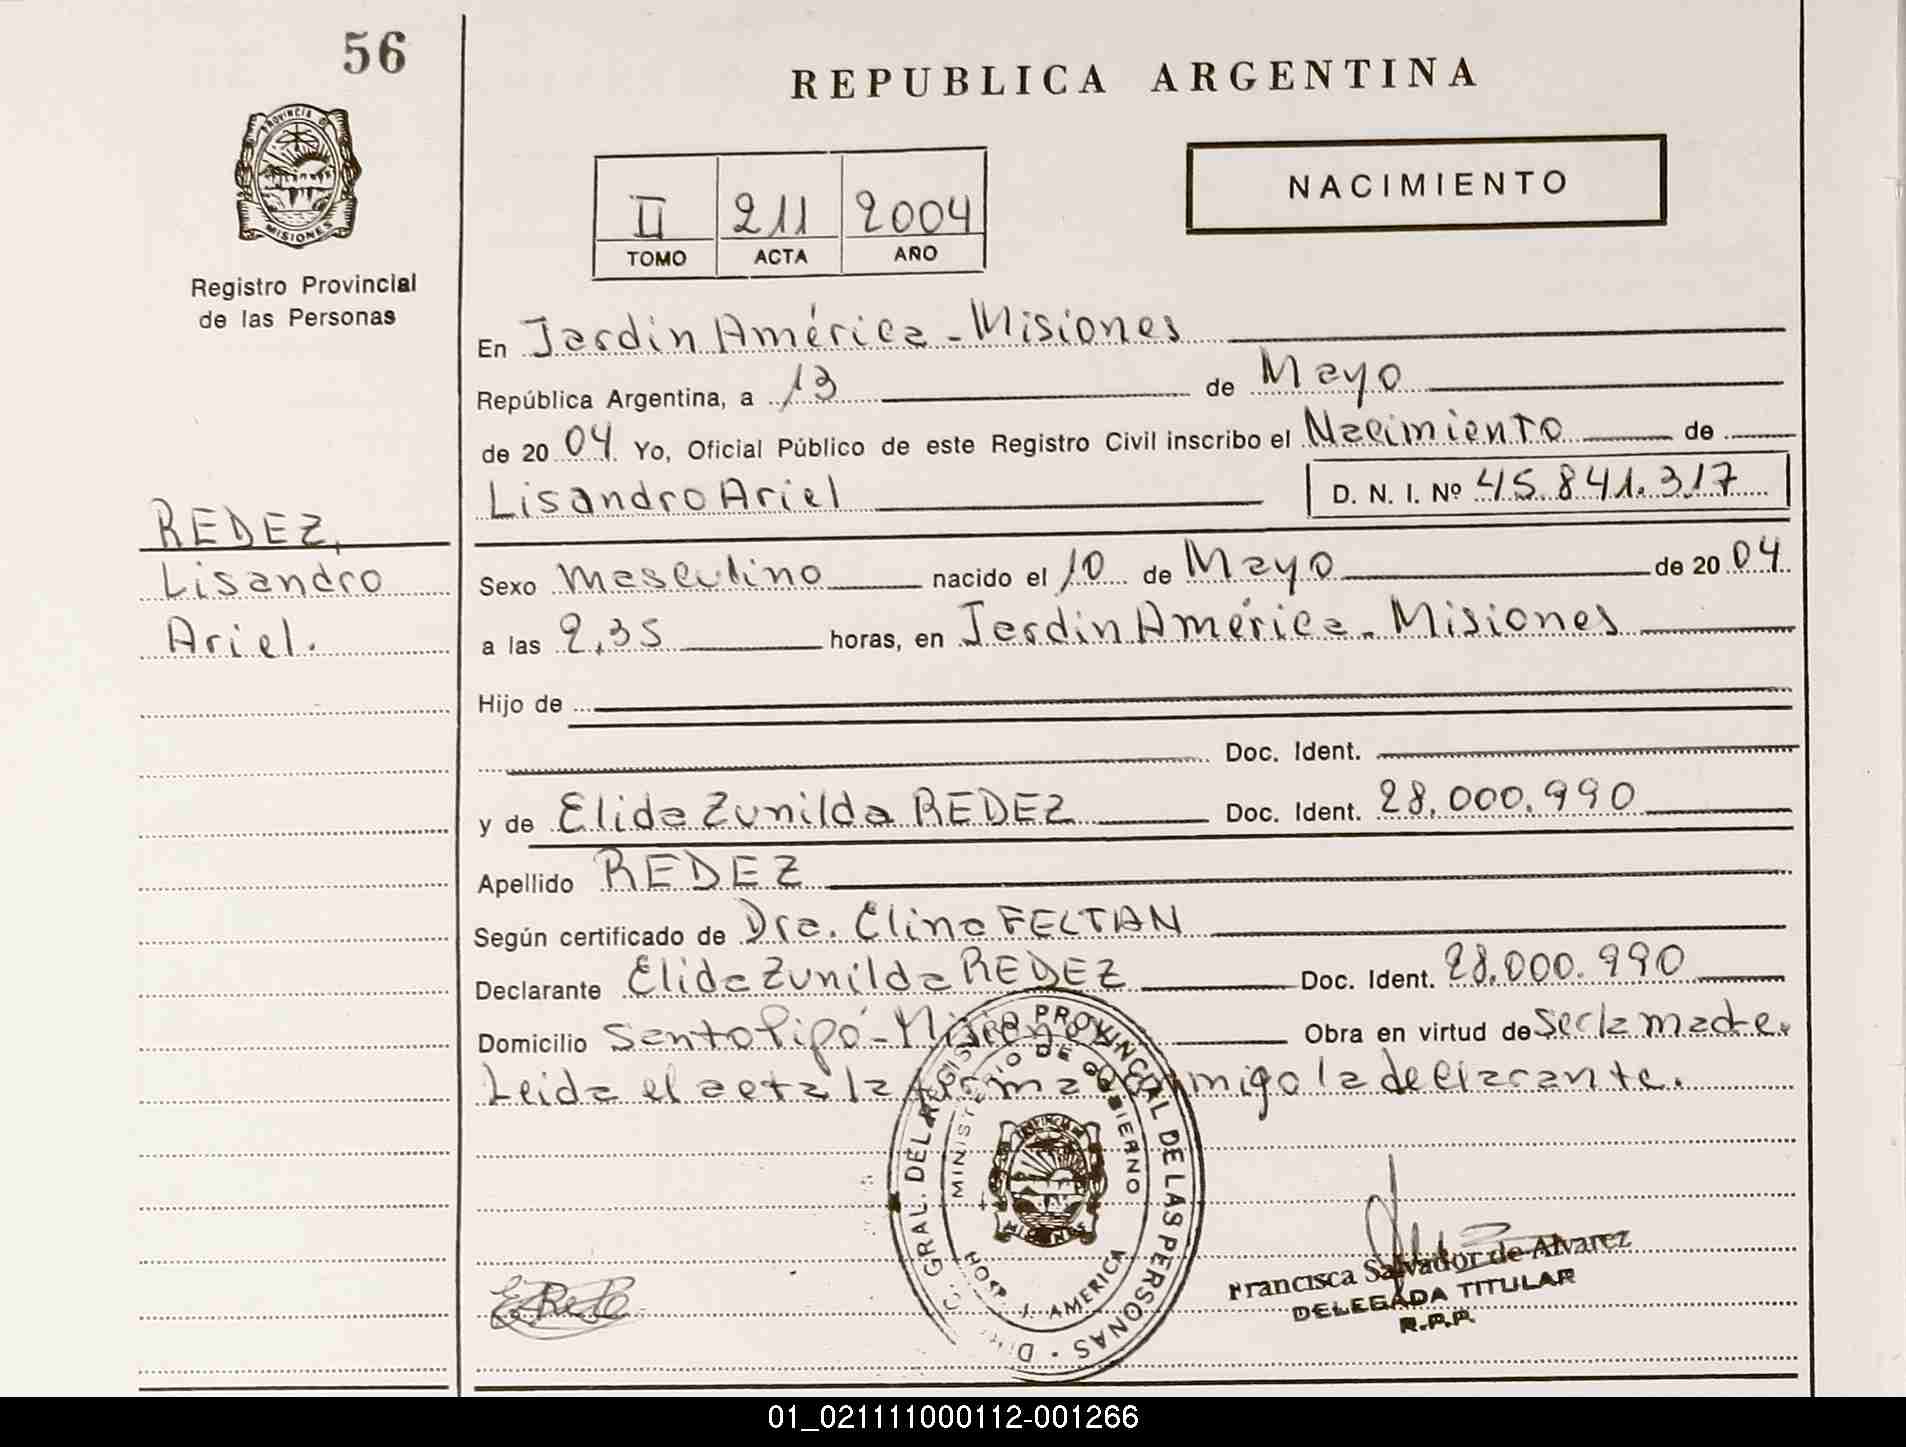 56
REPUBLICA ARGENTINA
PROVINCIA DE
MISIONES
Registro Provincial
de las Personas
NACIMIENTO
II 211 2004
TOMO ACTA AÑO
En Jardín América - Misiones
República Argentina, a 13 de Mayo
de 2004 Yo, Oficial Público de este Registro Civil inscribo el Nacimiento de
Lisandro Ariel D. N. I. Nº 45.841.317
REDEZ,
Lisandro
Ariel.
Sexo Masculino nacido el 10 de Mayo de 2004
a las 2,35 horas, en Jardín América - Misiones
Hijo de
Doc. Ident.
y de Elida Zunilda REDEZ Doc. Ident. 28.000.990
Apellido REDEZ
Según certificado de Dra. Elina FELTAN
Declarante Elida Zunilda REDEZ Doc. Ident. 28.000.990
Domicilio Santo Pipó - Misiones Obra en virtud de ser la madre.
Leida el acta la firma conmigo la declarante.
GRAL. DEL REGISTRO PROVINCIAL DE LAS PERSONAS
MINISTERIO DE GOBIERNO
PROVINCIA DE
MISIONES
HOSP. J. AMERICA
Francisca Salvador de Alvarez
DELEGADA TITULAR
R.P.P.
01_021111000112-001266